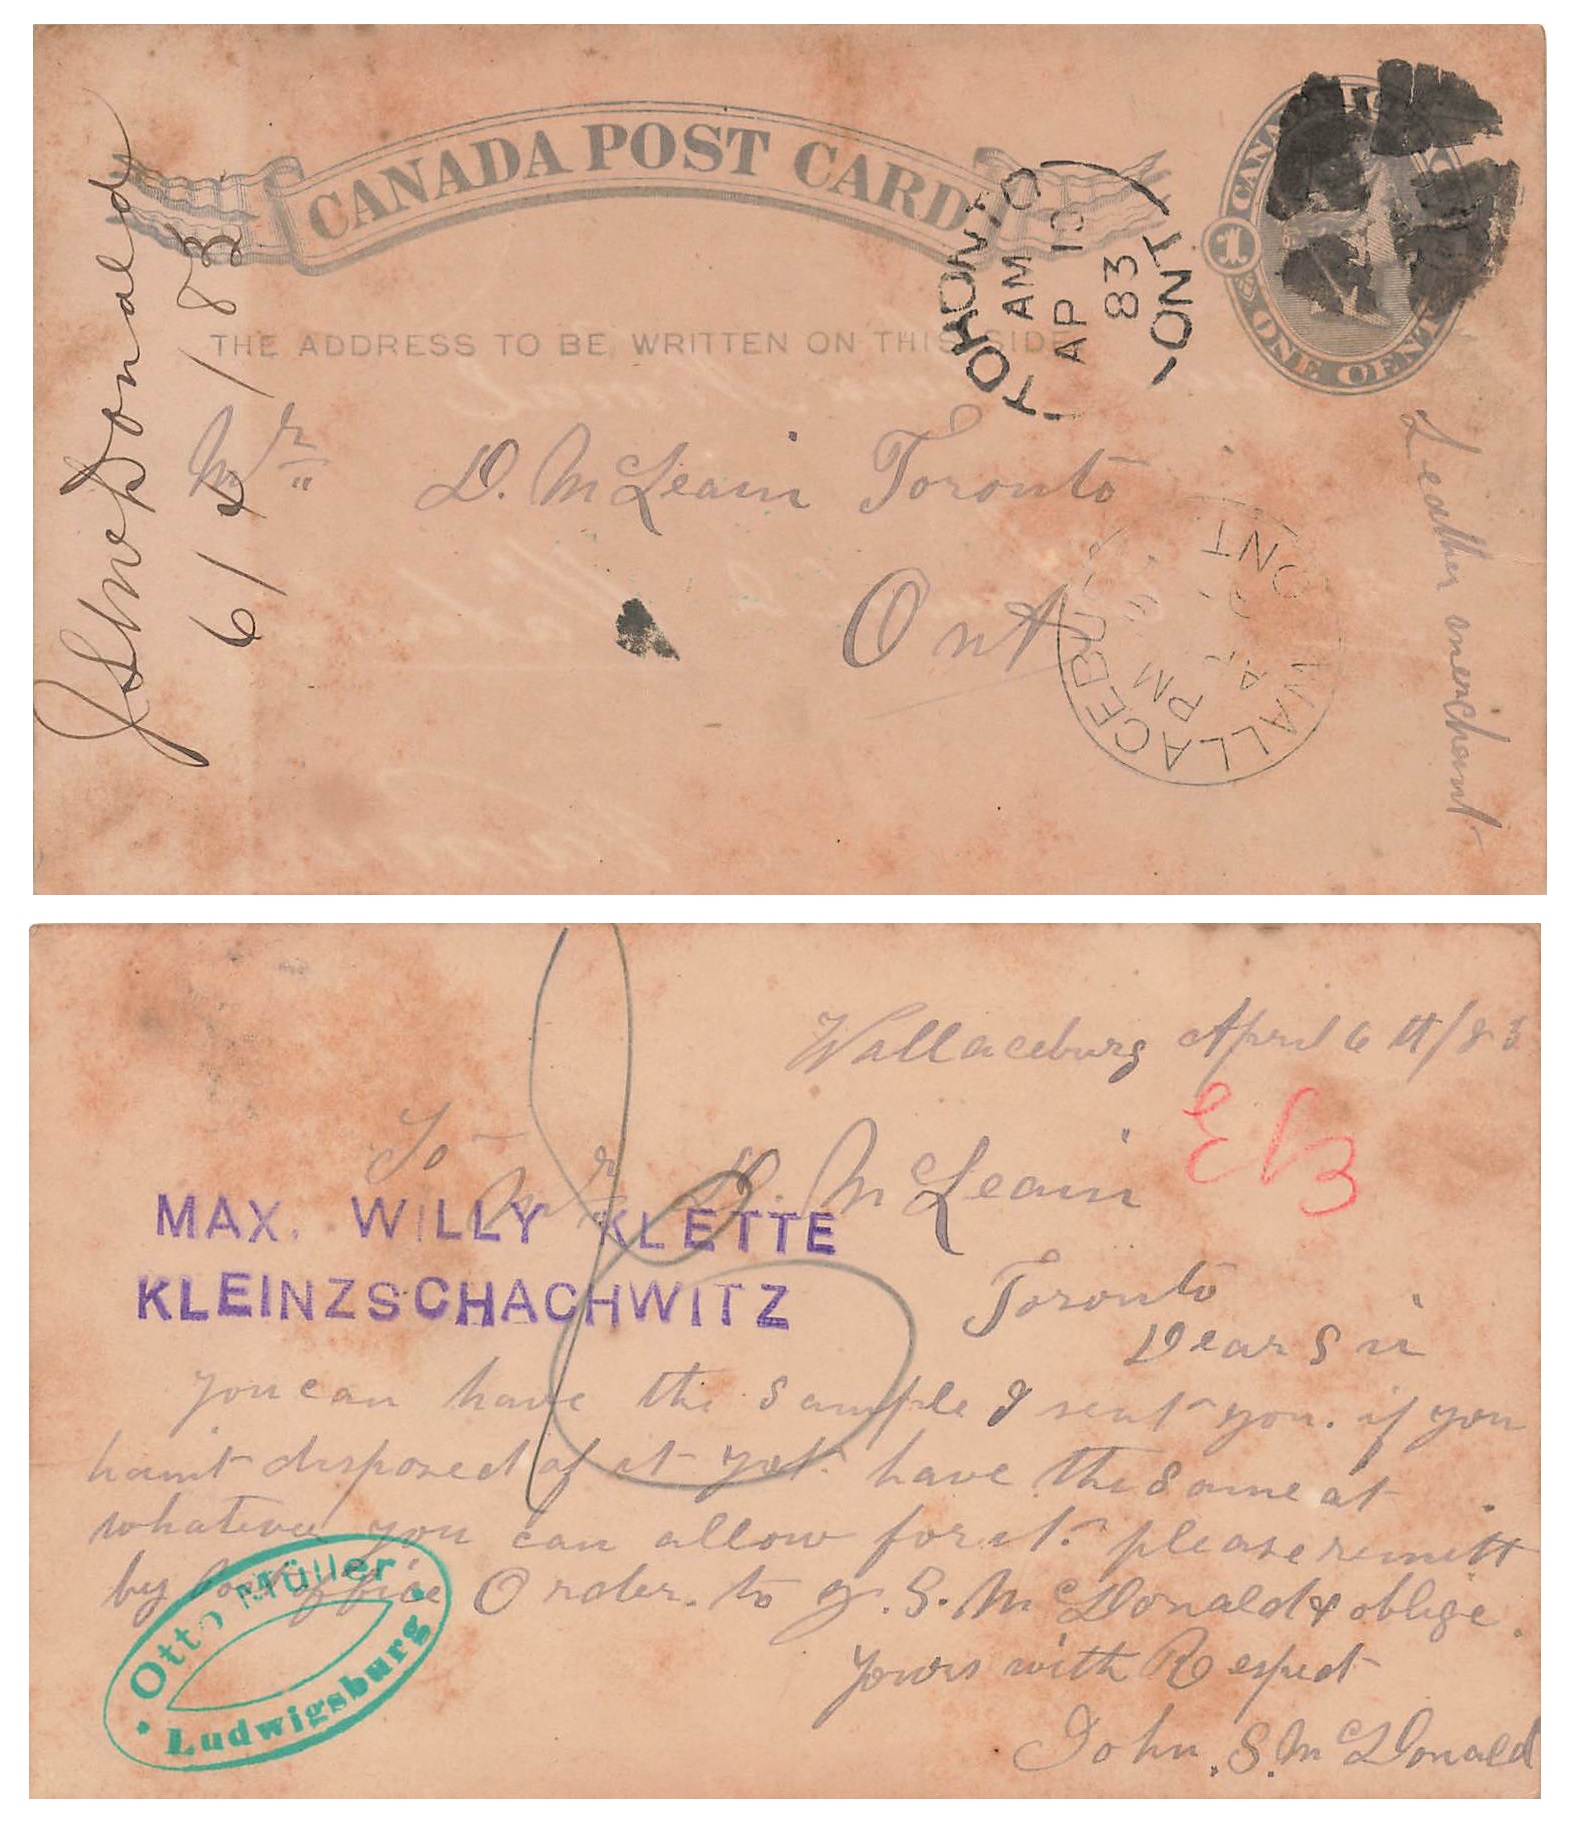 CANADA POST CARD
CANADA
1
ONE CENT
THE ADDRESS TO BE WRITTEN ON THIS SIDE
TORONTO
AM
AP 10
83
ONT
J S McDonald
6/4/83
Mr D. McLeain Toronto
Ont
WALLACEBURG
PM
ONT
Leather merchant
Wallaceburg April 6th/83
To
Mr D. McLeain
Toronto
Dear Sir
you can have the sample I sent you. if you
haint disposed of it yet have the same at
whatever you can allow for it. please remitt
by Post office Order. to J. S. McDonald & oblige.
yours with Respect
John. S. McDonald
MAX. WILLY KLETTE
KLEINZSCHACHWITZ
Otto Müller
Ludwigsburg